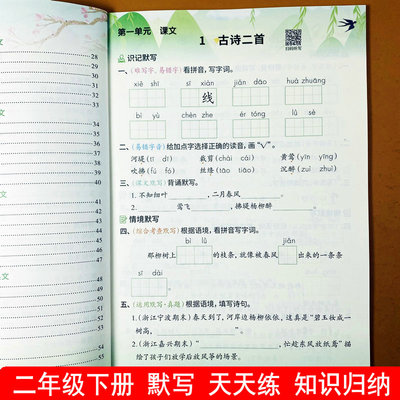 第一单元 课文
1 古诗二首
识记默写
一、(难写字、易错字)看拼音，写字词。
xiě shī xì xiàn jiǎn dāo huà zhuāng
线
bì yù chén zhe ér tóng lǜ sè
二、(易错字音)给加点字选择正确的读音，画“√”。
河堤(tī dī) 裁剪(chāi cái) 黄莺(yīn yīng)
吹拂(fú fó) 丝绦(tāo tiáo) 沉醉(zuì zhuì)
三、(课文默写)背诵默写。
1.不知细叶，二月春风。
2.莺飞，拂堤杨柳醉
情境默写
四、(综合考查默写)根据语境，看拼音写字词。
bì lǜ jiǎn
那柳树上的枝条，就像被春风出来的一条条
sī dài
。
五、(运用默写·真题)根据语境，填写诗句。
1.(浙江宁波期末)春天到了，河岸边杨柳依依，这真是“碧玉妆成一
树高，”。
2.(浙江嘉兴期末)“，忙趁东风放纸鸢”描
绘了孩子们放学后放风筝的场景。
28
29
30
32
33
34
35
36
37
39
40
41
42
43
45
46
47
48
49
51
52
54
55
二年级下册 默写 天天练 知识归纳